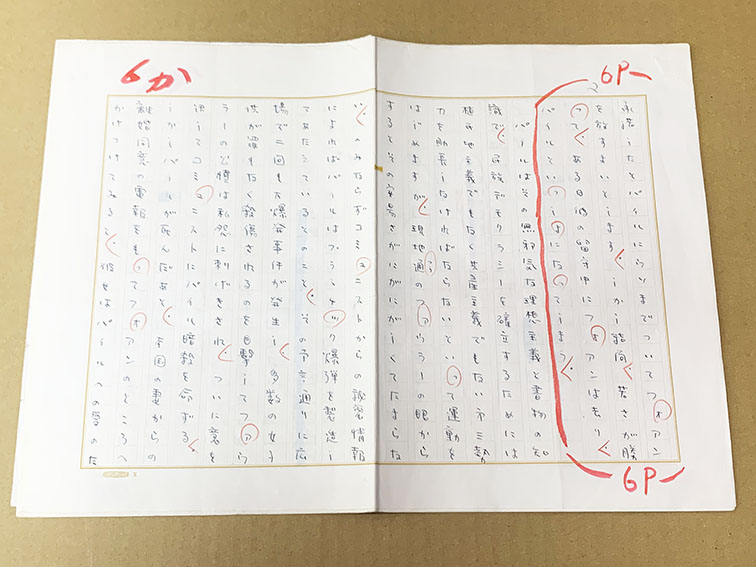 6P
2
承諾したとパイルにいうまでついてフォアン
を放すまいとします。しかし結局、若さが勝
って、ある日彼の留守中にフォアンは去り、
パイルといっしょになってしまう。
パイルはその無邪気な理想主義と書物の知
識で、民族デモクラシーを確立するためには
植民地主義でもなく共産主義でもない第三勢
力を助長しなければならないと って運動を
はじめますが、現地通のファウラーの眼から
するとその安易さがにがにがしくてたまらな
い。のみならずコミュニストからの秘密情報
によればパイルはプラスチック爆弾を製造し
てあたえているとのこと、その予言通りに広
場で二回も大爆発事件が発生し、多数の女子
供が罪もなく殺傷されるのを目撃してファウ
ラーの公憤は私怨に刺げきされ、ついに意を
決してコミュニストにパイル暗殺を命ずる。
しかしパイルが死んだあと、本国の妻からの
離婚同意の電報をもってフォアンのところへ
かけつけてみると、彼女はパイルへの愛のた
6P
6か